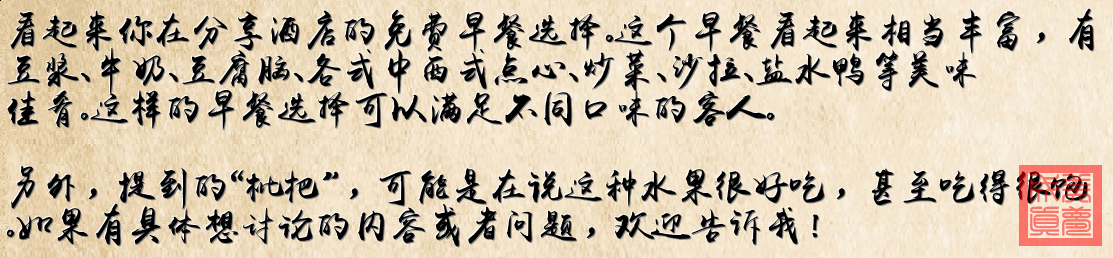 看起来你在分享酒店的免费早餐选择。这个早餐看起来相当丰富，有
豆浆、牛奶、豆腐脑、各式中西式点心、炒菜、沙拉、盐水鸭等美味
佳肴。这样的早餐选择可以满足不同口味的客人。
另外，提到的“枇杷”，可能是在说这种水果很好吃，甚至吃得很饱
。如果有具体想讨论的内容或者问题，欢迎告诉我！